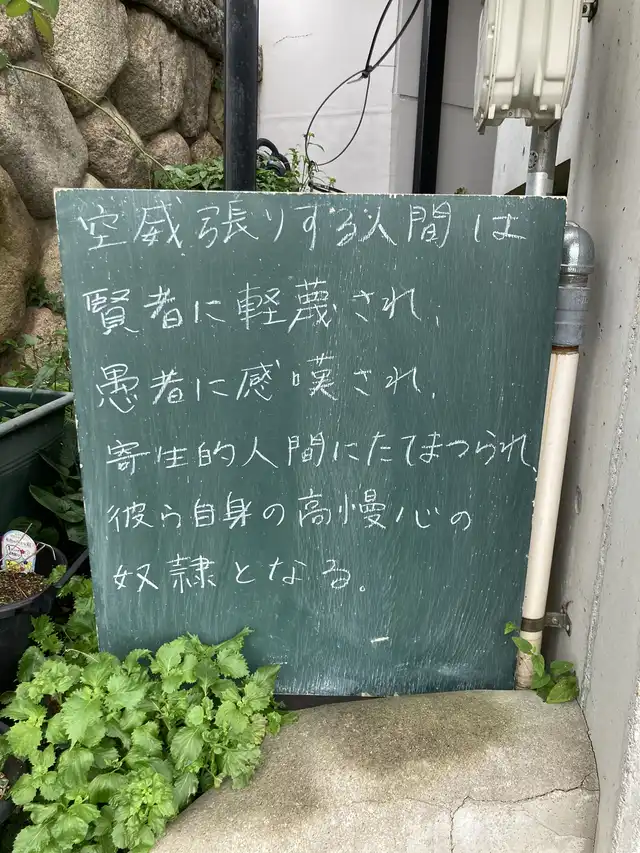 空威張りする人間は
賢者に軽蔑され、
愚者に感嘆され、
寄生的人間にたてまつられ、
彼ら自身の高慢心の
奴隷となる。